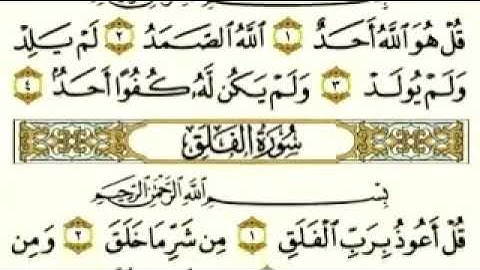 بِسْمِ ٱللَّهِ ٱلرَّحْمَٰنِ ٱلرَّحِيمِ
قُلْ هُوَ ٱللَّهُ أَحَدٌ ١ ٱللَّهُ ٱلصَّمَدُ ٢ لَمْ يَلِدْ
وَلَمْ يُولَدْ ٣ وَلَمْ يَكُن لَّهُۥ كُفُوًا أَحَدٌۢ ٤
سُورَةُ ٱلْفَلَقِ
بِسْمِ ٱللَّهِ ٱلرَّحْمَٰنِ ٱلرَّحِيمِ
قُلْ أَعُوذُ بِرَبِّ ٱلْفَلَقِ ١ مِن شَرِّ مَا خَلَقَ ٢ وَمِن